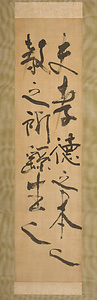 夫孝德之本也
教之所繇生也